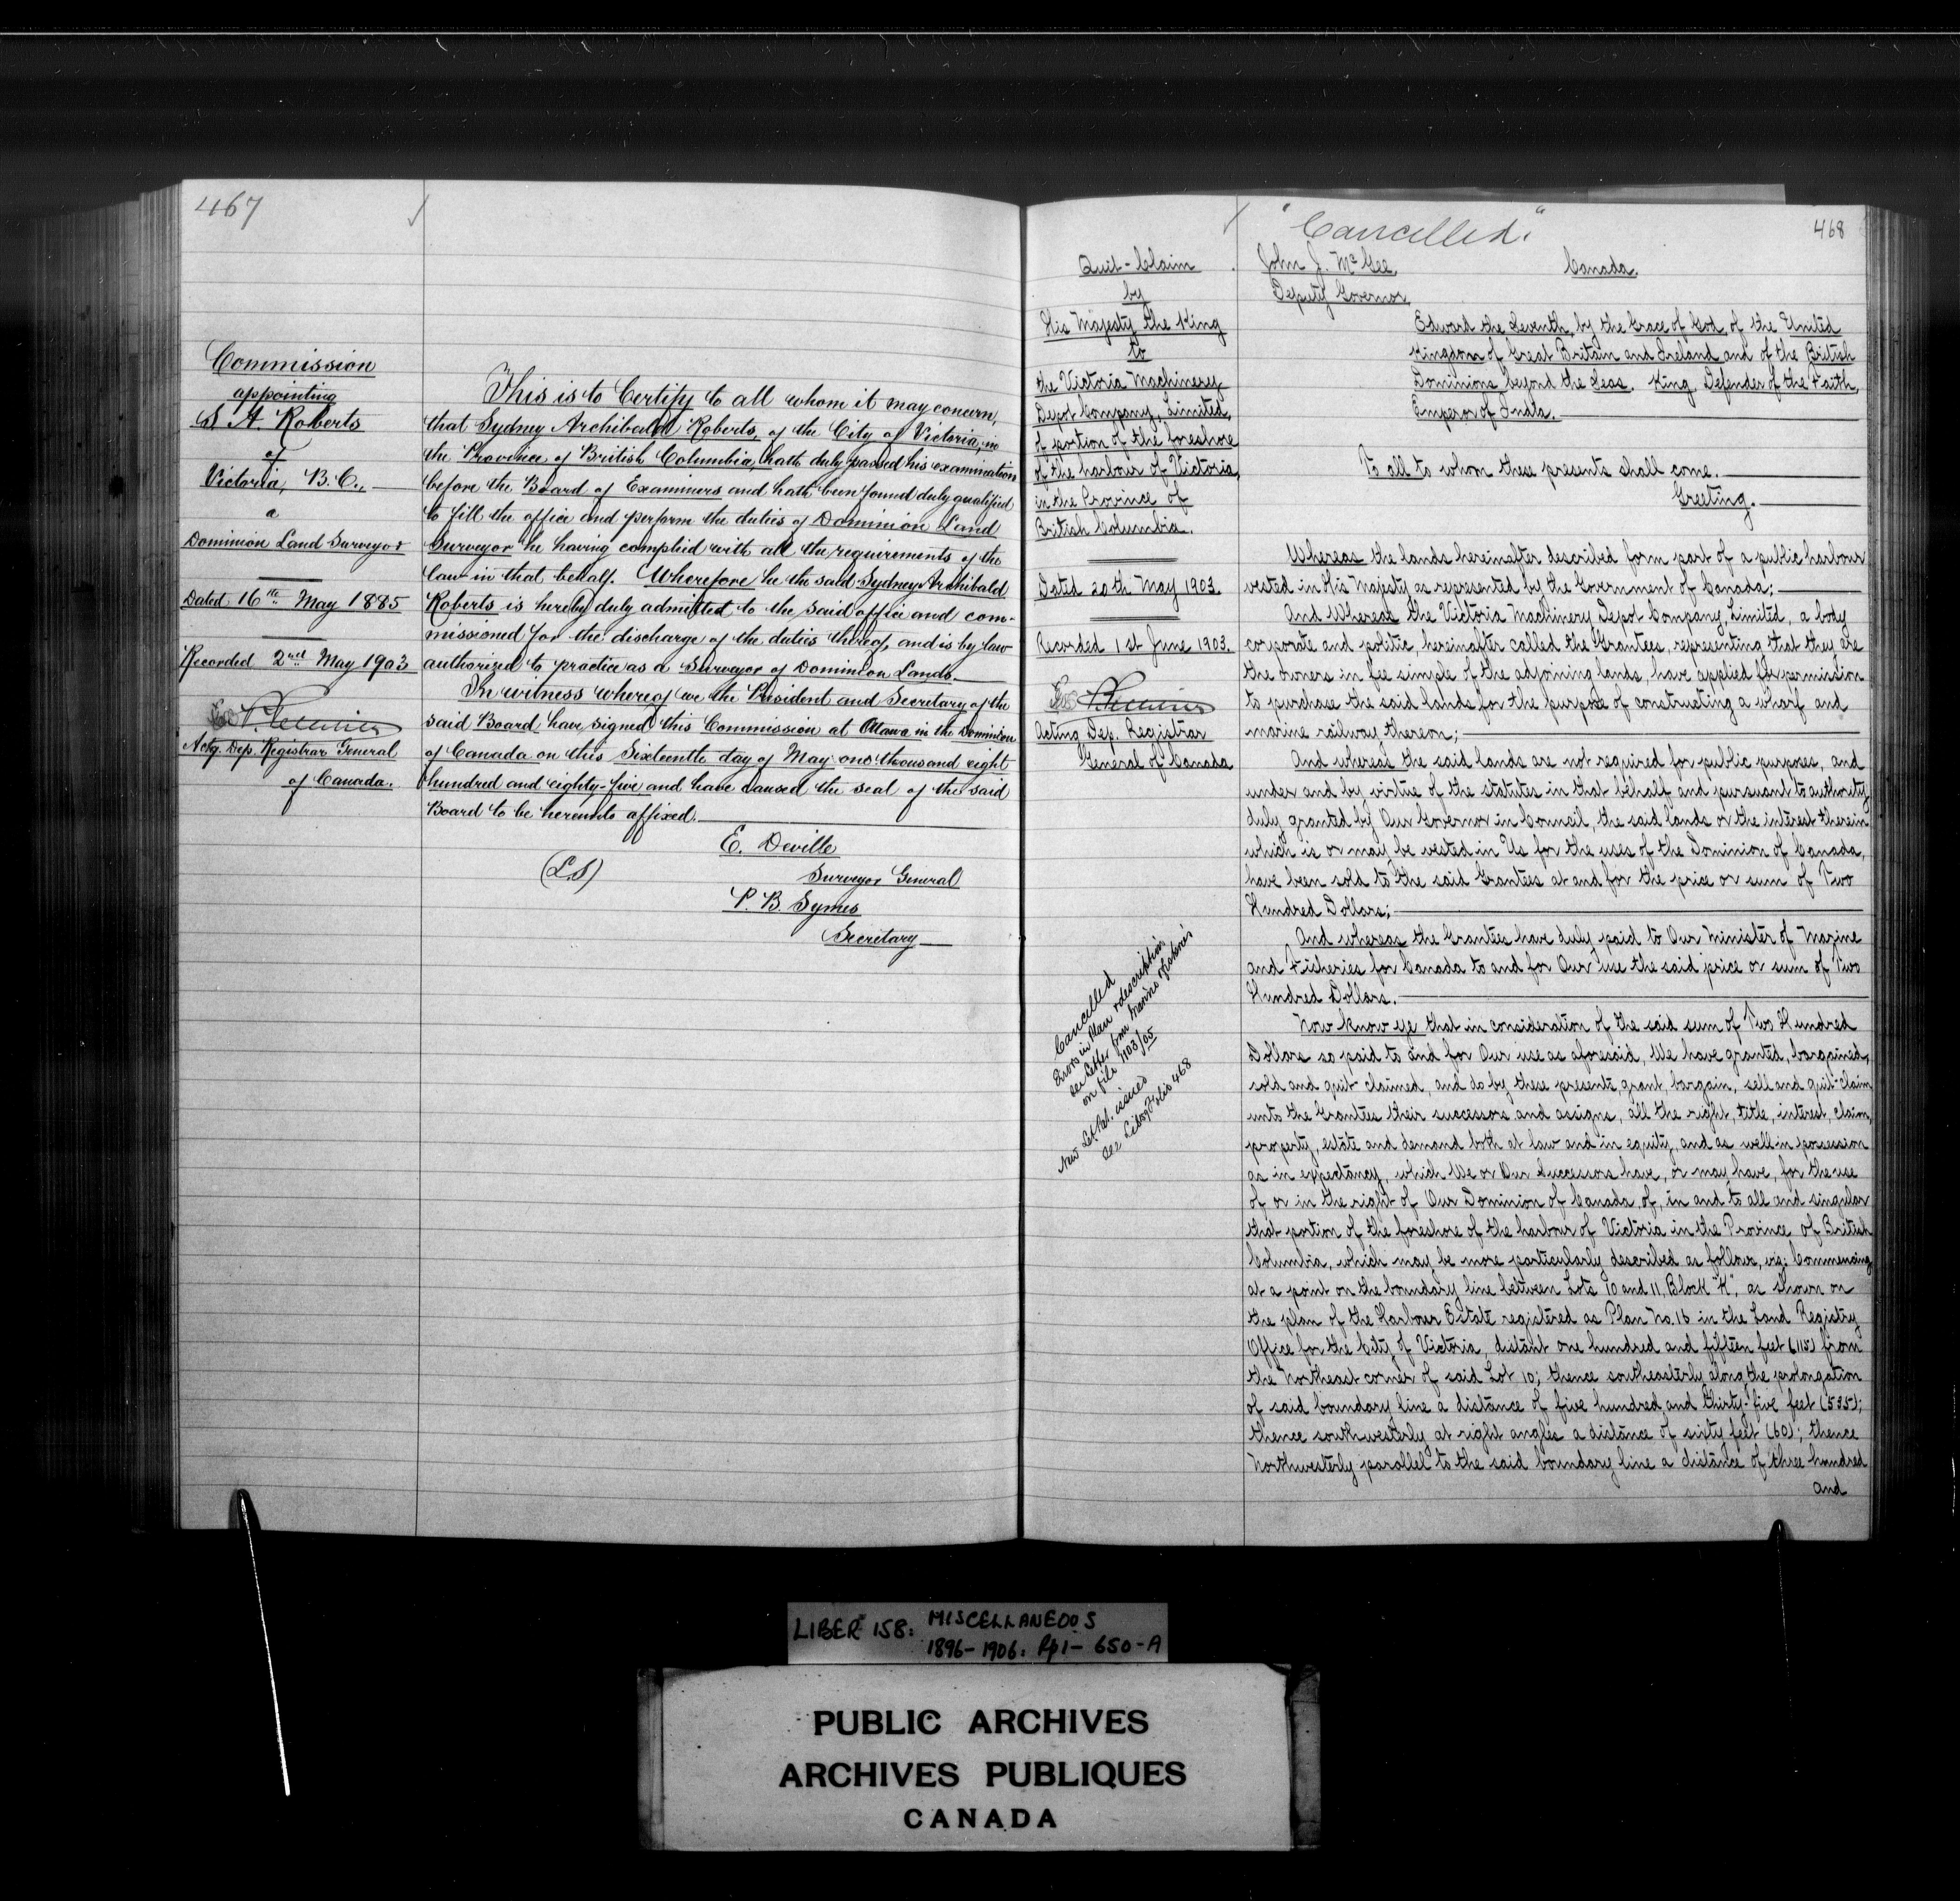 467
Commission
appointing
S. A. Roberts
of
Victoria, B.C.,
a
Dominion Land Surveyor
Dated 16th May 1885
Recorded 2nd May 1903
Actg. Dep. Registrar General
of Canada.
This is to Certify to all whom it may concern,
that Sydney Archibald Roberts, of the City of Victoria, in
the Province of British Columbia, hath duly passed his examination
before the Board of Examiners and hath been found duly qualified
to fill the office and perform the duties of Dominion Land
Surveyor he having complied with all the requirements of the
law in that behalf. Wherefore he the said Sydney Archibald
Roberts is hereby duly admitted to the said office and com-
missioned for the discharge of the duties thereof, and is by law
authorized to practice as a Surveyor of Dominion Lands.
In witness whereof we the President and Secretary of the
said Board have signed this Commission at Ottawa in the Dominion
of Canada on this Sixteenth day of May one thousand eight
hundred and eighty-five and have caused the seal of the said
Board to be hereunto affixed.
E. Deville
(L.S)
Surveyor General
P. B. Symes
Secretary
"Cancelled."
468
Quit-Claim
by
His Majesty the King
to
the Victoria Machinery
Depot Company, Limited,
of portion of the foreshore
of the harbour of Victoria,
in the Province of
British Columbia.
Dated 20th May 1903.
Recorded 1st June 1903.
Acting Dep. Registrar
General of Canada
Cancelled
Error in plan & description
see letter from Marine & Fisheries
on file 1103/05
New Let. Pat. issued
See Folio 468
John J. McGee,
Canada.
Deputy Governor
Edward the Seventh, by the Grace of God, of the United
Kingdom of Great Britain and Ireland and of the British
Dominions beyond the Seas. King, Defender of the Faith,
Emperor of India.
To all to whom these presents shall come.
Greeting.
Whereas the lands hereinafter described form part of a public harbour
vested in His Majesty as represented by the Government of Canada;
And Whereas the Victoria Machinery Depot Company, Limited, a body
corporate and politic, hereinafter called the Grantees, representing that they are
the owners in fee simple of the adjoining lands, have applied for permission
to purchase the said lands for the purpose of constructing a wharf and
marine railway thereon;
And whereas the said lands are not required for public purposes, and
under and by virtue of the statutes in that behalf and pursuant to authority
duly granted by Our Governor in Council, the said lands or the interest therein
which is or may be vested in Us for the uses of the Dominion of Canada,
have been sold to the said Grantees at and for the price or sum of Two
Hundred Dollars;
And whereas the Grantees have duly paid to Our Minister of Marine
and Fisheries for Canada to and for Our use the said price or sum of Two
Hundred Dollars.
Now know ye that in consideration of the said sum of Two Hundred
Dollars so paid to and for Our use as aforesaid, We have granted, bargained,
sold and quit-claimed, and do by these presents, grant, bargain, sell and quit-claim
unto the Grantees their successors and assigns, all the right, title, interest, claim,
property, estate and demand both at law and in equity, and as well in possession
as in expectancy, which We or Our Successors have, or may have, for the use
of or in the right of Our Dominion of Canada, of, in and to all and singular
that portion of the foreshore of the harbour of Victoria in the Province of British
Columbia, which may be more particularly described as follows, viz: Commencing
at a point on the boundary line between Lots 10 and 11, Block "K", as shown on
the plan of the Harbour Estate registered as Plan No. 16 in the Land Registry
Office for the City of Victoria, distant one hundred and fifteen feet (115) from
the Northeast corner of said Lot 10; thence southeasterly along the prolongation
of said boundary line a distance of five hundred and thirty-five feet (535);
thence southwesterly at right angles a distance of sixty feet (60); thence
Northwesterly parallel to the said boundary line a distance of three hundred
and
LIBER 158: MISCELLANEOUS
1896-1906: Pp 1- 650-A
PUBLIC ARCHIVES
ARCHIVES PUBLIQUES
CANADA